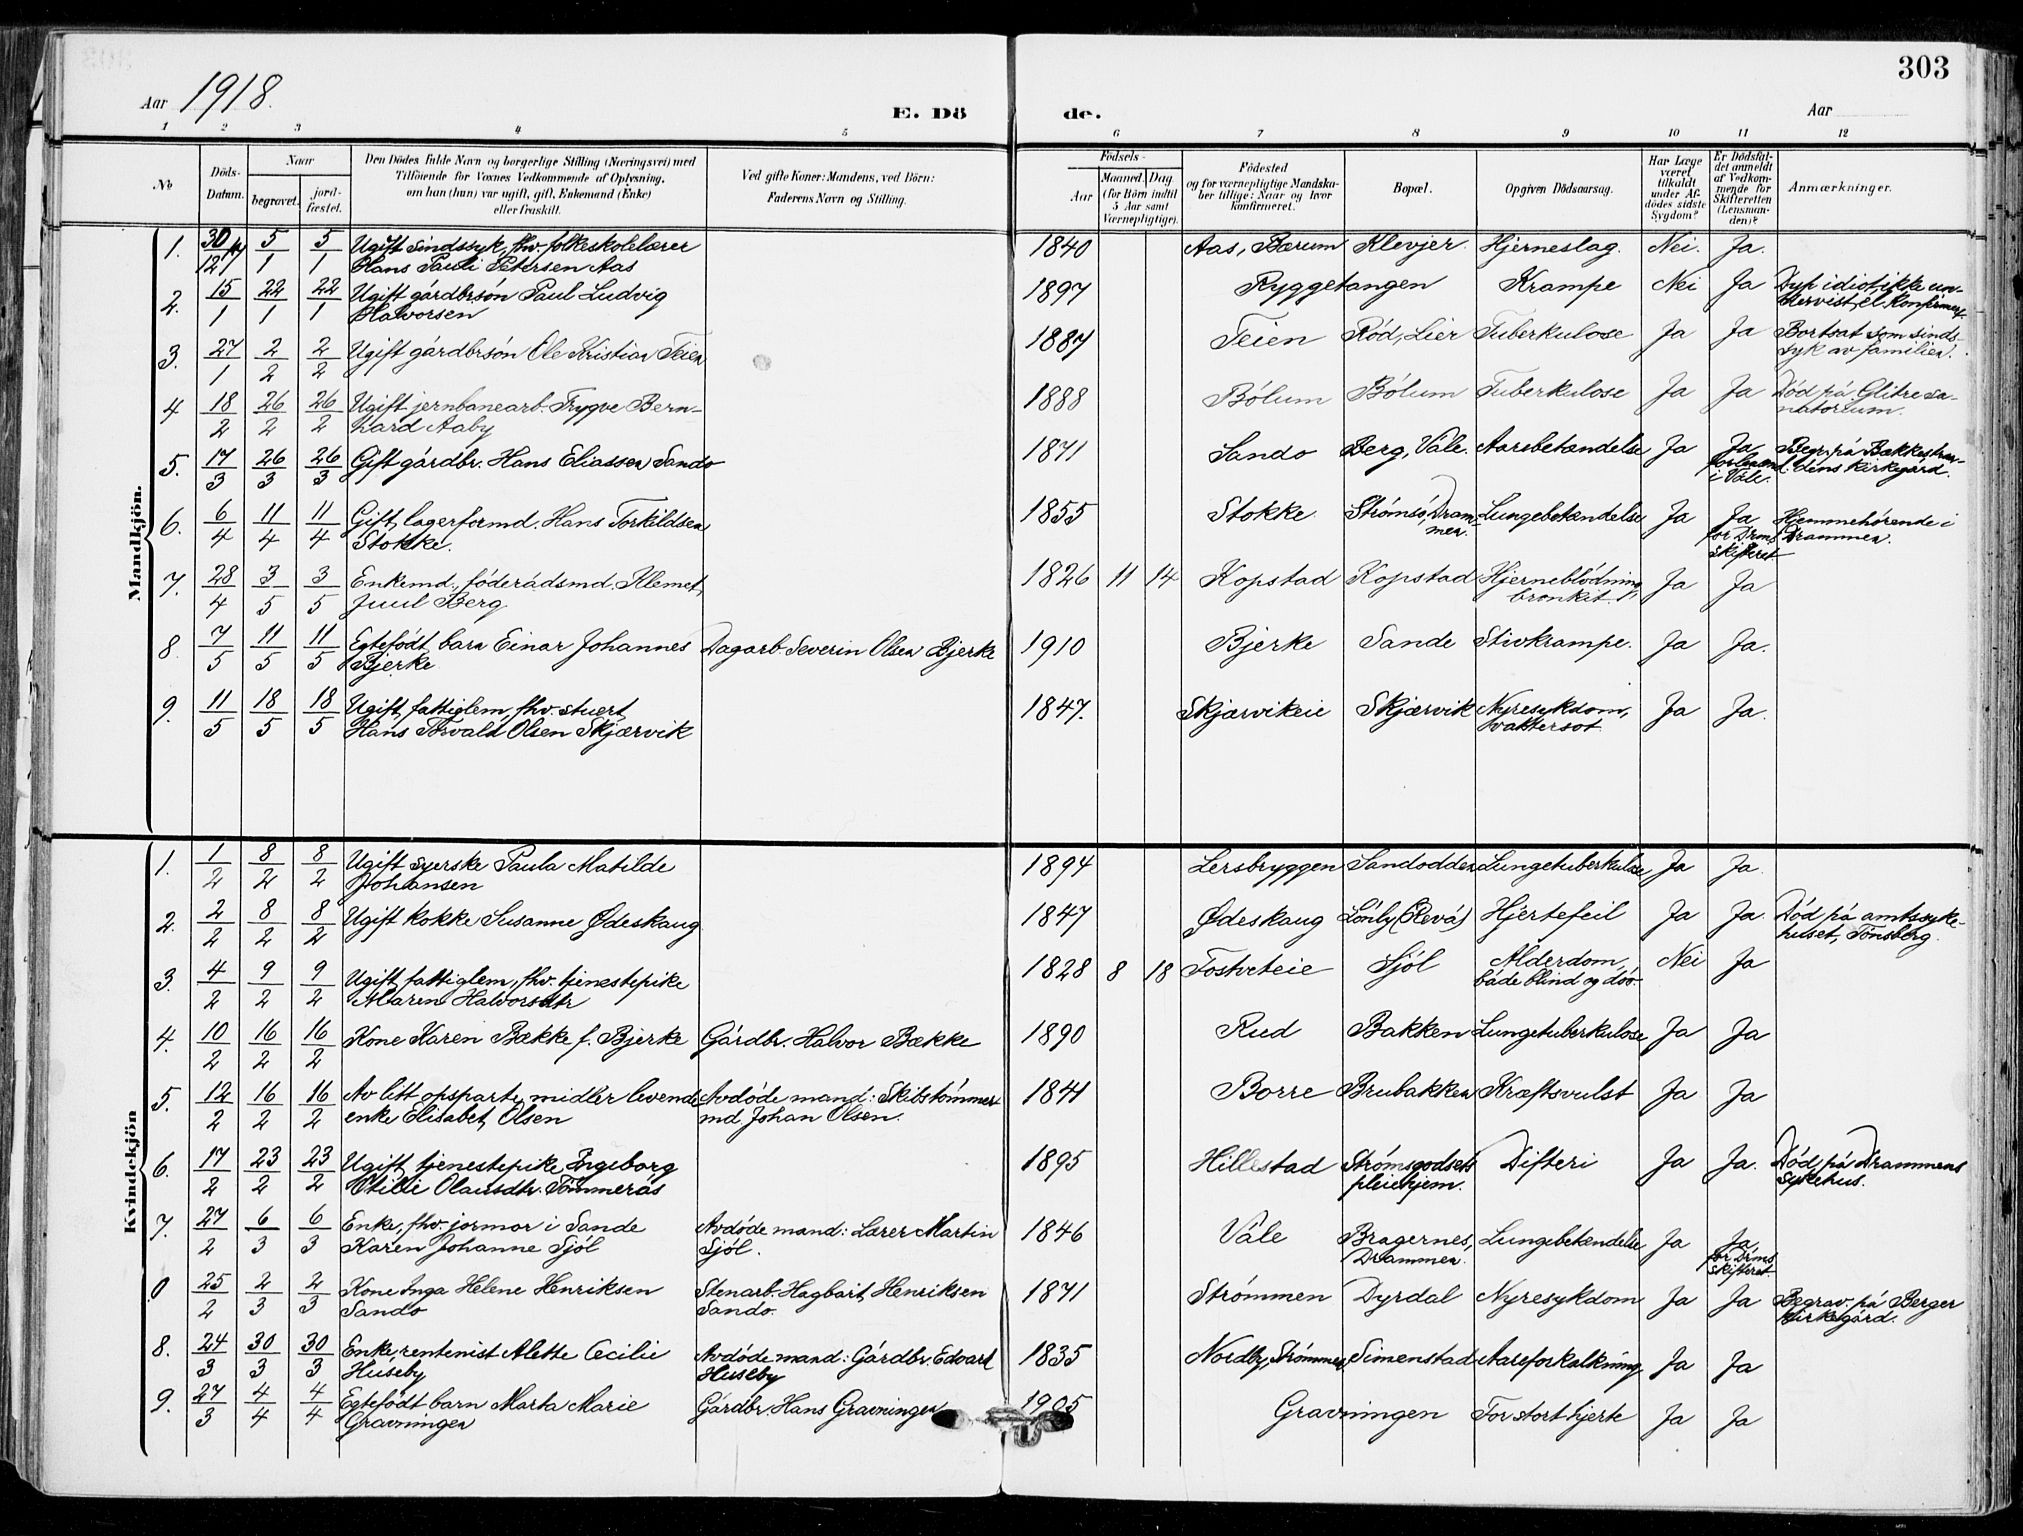 303
Aar 1918. E. Dö de. Aar
1 2 3 4 5 6 7 8 9 10 11 12
No
Döds-
Datum.
Naar
begravet.
jord-
fæstet.
Den Dödes fulde Navn og borgerlige Stilling (Næringsvei) med
Tilföiende for Voxnes Vedkommende af Oplysning,
om han (hun) var ugift, gift, Enkemand (Enke)
eller fraskilt.
Ved gifte Koner: Mandens, ved Börn:
Faderens Navn og Stilling.
Födsels-
Aar
Maaned. Dag.
(for Börn indtil
5 Aar samt
Værnepligtige).
Födested
og for værnepligtige Mandska-
ber tillige: Naar og hvor
konfirmeret.
Bopæl.
Opgiven Dödsaarsag.
Har Læge
været
tilkaldt
under Af-
dödes sidste
Sygdom?
Er Dödsfal-
det anmeldt
af Vedkom-
mende for
Skifteretten
(Lensman-
den)?
Anmærkninger.
Mandkjön.
1. 30/12 17 5/1 5/1 Ugift sindssyk, fhv. folkeskolelærer 1840 Aas, Bærum Klevjer. Hjerneslag. Nei. Ja.
Hans Pauli Petersen Aas
2. 15/1 22/1 22/1 Ugift gårdbrsøn Paul Ludvig 1897 Ryggetangen Krampe Nei Ja Dyp idiot, ikke un-
Halvorsen dervist el. konfirmert.
3. 27/1 2/2 2/2 Ugift gårdbrsøn Ole Kristian Teien 1887 Teien Röd, Lier Tuberkulose Ja Ja Bortsat som sinds-
syk av familien.
4 18/2 26/2 26/2 Ugift jernbanearb. Trygve Bern- 1888 Bólum Bólum Tuberkulose Ja Ja Död på Glitre sa-
hard Aaby natorium.
5. 17/3 26/3 26/3 Gift gårdbr. Hans Eliassen Sando 1871 Sando Berg, Våle. Aarebetændelse Ja Ja Begr. på Bækkestran-
for lensmd. i Våle. dens kirkegård.
6. 6/4 11/4 11/4 Gift, lagerformd. Hans Torkildsen 1855 Stokke Strómsó, Dram- Lungebetændelse Ja Ja Hjemmehörende i
Stokke. men. for Drms skifteret Drammen.
7. 28/4 3/5 3/5 Enkemd., föderådsmd. Klemet 1826 11 14 Kopstad Kopstad Hjerneblödning, Ja Ja
Juul Berg bronkit.
8. 7/5 11/5 11/5 Egtefödt barn Einar Johannes Dagarb. Severin Olsen Bjerke 1910 Bjerke Sande Stivkrampe. Ja Ja.
Bjerke
9. 11/5 18/5 18/5 Ugift, fattiglem, fhv. stuert 1847. Skjærvikeie Skjærvik Nyresykdom, Ja Ja.
Hans Torvald Olsen Skjærvik vattersot.
Kvindekjön
1. 1/2 8/2 8/2 Ugift syerske Paula Matilde 1894 Lersbryggen Sandodden Lungetuberkulose Ja Ja.
Johansen
2. 2/2 8/2 8/2 Ugift kokke Susanne Ødeskaug 1847 Ødeskaug Lónly (Revå) Hjertefeil Ja Ja. Död på amtssyke-
huset, Tönsberg.
3. 4/2 9/2 9/2 Ugift, fattiglem, fhv. tjenestepike 1828 8 18 Tostveteie Sjól Alderdom, Nei Ja
Maren Halvorsdtr både blind og döv.
4. 10/2 16/2 16/2 Kone Karen Bække f. Bjerke Gårdbr. Halvor Bække 1890 Rud Bakken Lungetuberkulose Ja Ja
5. 12/2 16/2 16/2 Av litt opsparte midler levende Avdöde mand: Skibstömmer- 1841 Borre Brubakken Kræftsvulst Ja Ja
enke Elisabet Olsen md. Johan Olsen.
6. 17/2 23/2 23/2 Ugift, tjenestepike Ingeborg 1895 Hillestad Strömsgodsets Difteri Ja Ja. Död på Drammens
Otilie Olausdtr. Tömmerås pleiehjem. sykehus.
7. 27/2 6/3 6/3 Enke, fhv. jormor i Sande Avdöde mand: Lærer Martin 1846 Våle Bragernes, Lungebetændelse Ja Ja
Karen Johanne Sjól Sjól. Drammen. for Drms skifteret.
0 25/2 2/3 2/3 Kone Inga Helene Henriksen Stenarb. Hagbart Henriksen 1871 Strömmen Dyrdal Nyresykdom Ja Ja Begrav. på Berger
Sando Sando. kirkegård.
8. 24/3 30/3 30/3 Enke, rentenist Alette Cecilie Avdöde mand: Gårdbr. Edvard 1835 Nordby, Strömmen Simenstad Aareforkalkning Ja Ja
Huseby Huseby
9. 27/3 4/4 4/4 Egtefödt barn Marta Marie Gårdbr. Hans Gravningen 1905 Gravningen For stort hjerte Ja Ja
Gravningen